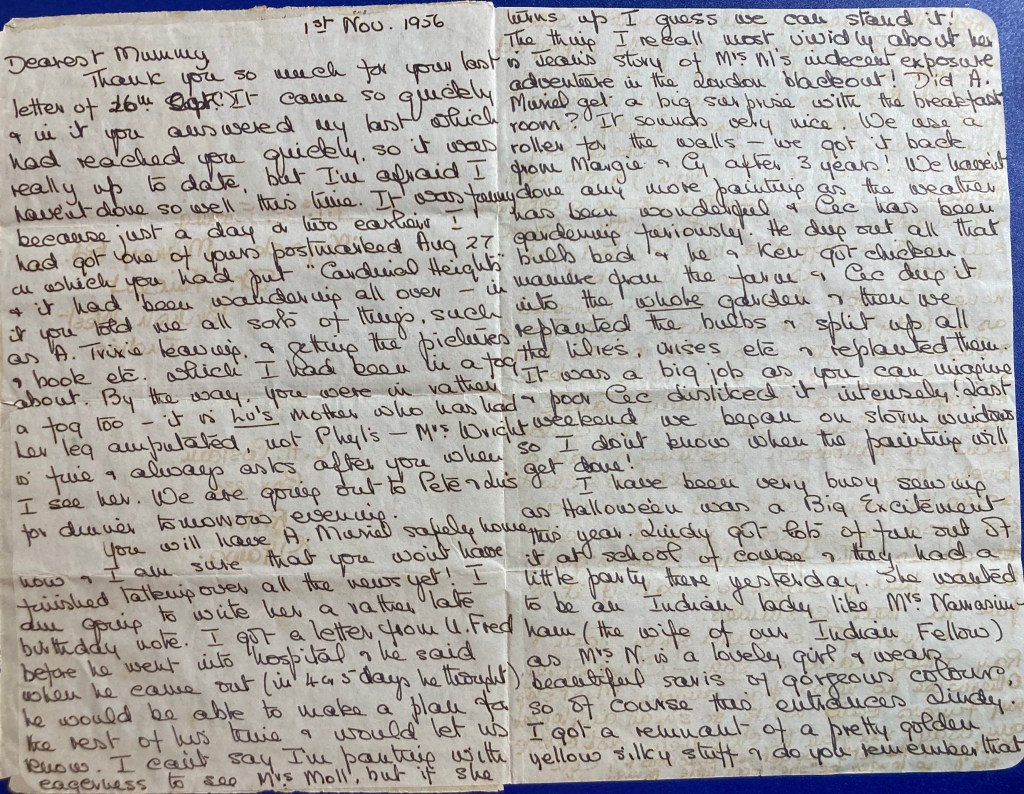 1st Nov. 1956
Dearest Mummy
Thank you so much for your last
letter of 26th Sept! It came so quickly
& in it you answered my last which
had reached you quickly, so it was
really up to date, but I'm afraid I
haven't done so well this time. It was funny
because just a day or two earlier I
had got one of yours postmarked Aug 27
on which you had put "Cardinal Heights"
& it had been wandering all over – in
it you told me all sorts of things, such
as A. Trixie leaving, & getting the pictures
& book etc. which I had been in a fog
about. By the way, you were in rather
a fog too – it is Lu's mother who has had
her leg amputated, not Phyl's – Mrs Wright
is fine & always asks after you when
I see her. We are going out to Pete & Lu's
for dinner tomorrow evening.
You will have A. Muriel safely home
now & I am sure that you won't have
finished talking over all the news yet! I
am going to write her a rather late
birthday note. I got a letter from U. Fred
before he went into hospital & he said
when he came out (in 4 or 5 days he thought)
he would be able to make a plan for
the rest of his time & would let us
know. I can't say I'm panting with
eagerness to see Mrs Moll, but if she
turns up I guess we can stand it!
The thing I recall most vividly about her
is Jean's story of Mrs M's indecent exposure
adventure in the London blackout! Did A.
Muriel get a big surprise with the breakfast
room? It sounds very nice. We use a
roller for the walls – we got it back
from Margie & Cy after 3 years! We haven't
done any more painting as the weather
has been wonderful & Cec has been
gardening furiously. He dug out all that
bulb bed & he & Ken got chicken
manure from the farm & Cec dug it
into the whole garden & then we
replanted the bulbs & split up all
the lilies, irises etc & replanted them.
It was a big job as you can imagine
& poor Cec disliked it intensely! Last
weekend we began on storm windows
so I don't know when the painting will
get done!
I have been very busy sewing
as Halloween was a Big Excitement
this year. Lindy got lots of fun out of
it at school of course & they had a
little party there yesterday. She wanted
to be an Indian lady like Mrs Narasim-
ham (the wife of our Indian Fellow)
as Mrs N. is a lovely girl & wears
beautiful saris of gorgeous colours,
so of course this entrances Lindy.
I got a remnant of a pretty golden
yellow silky stuff & do you remember that